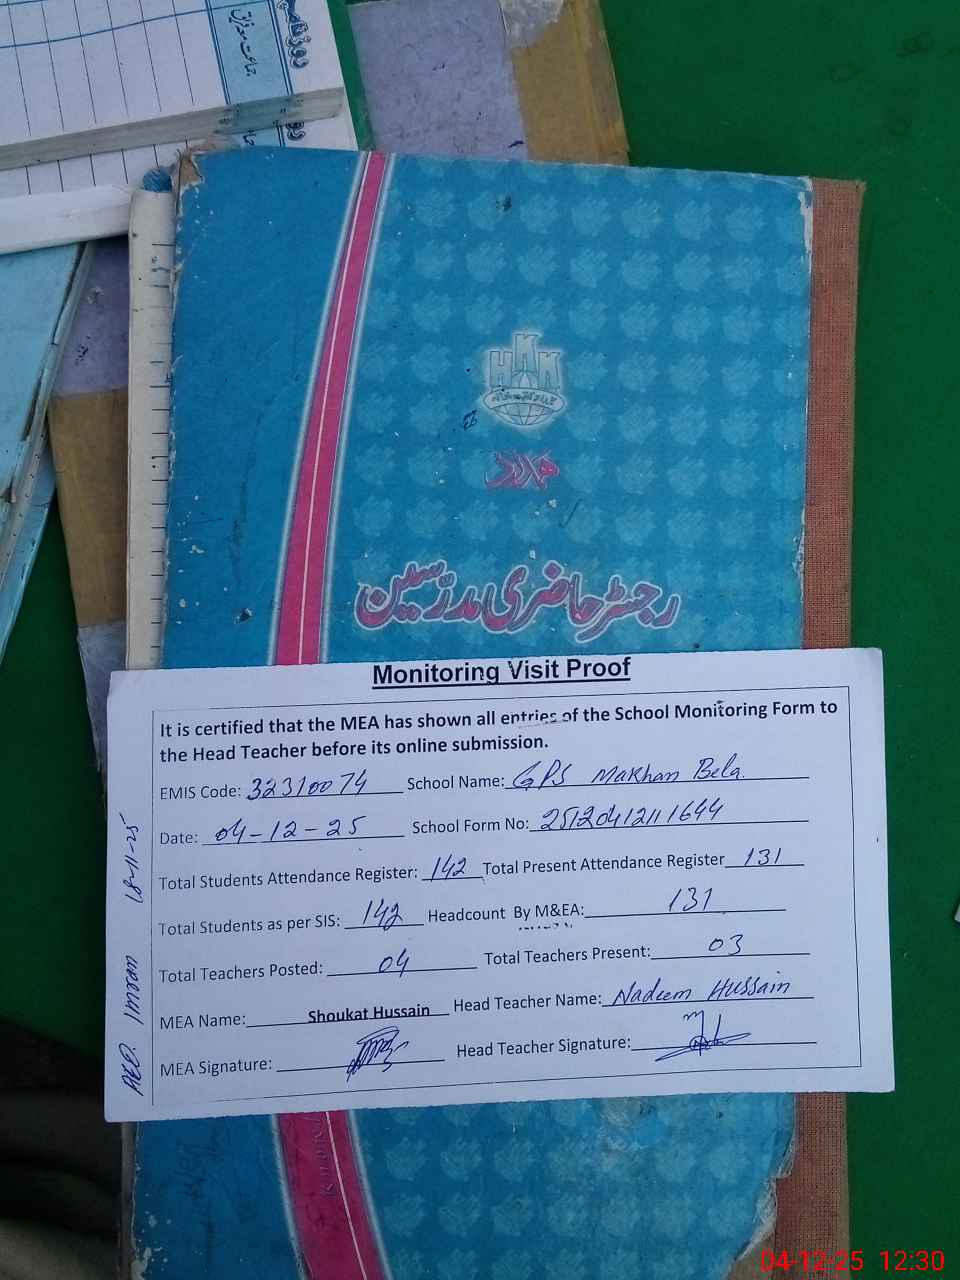 روزنامچہ
جماعت
HKK
ہمدرد
رجسٹر حاضری مدرّسین
Monitoring Visit Proof
It is certified that the MEA has shown all entries of the School Monitoring Form to
the Head Teacher before its online submission.
EMIS Code: 32310074 School Name: GPS Makhan Bela.
Date: 04-12-25 School Form No: 25120412111644
Total Students Attendance Register: 142 Total Present Attendance Register 131
Total Students as per SIS: 142 Headcount By M&EA: 131
Total Teachers Posted: 04 Total Teachers Present: 03
MEA Name: Shoukat Hussain Head Teacher Name: Nadeem Hussain
MEA Signature: Head Teacher Signature:
Imran 18-11-25
04-12-25 12:30